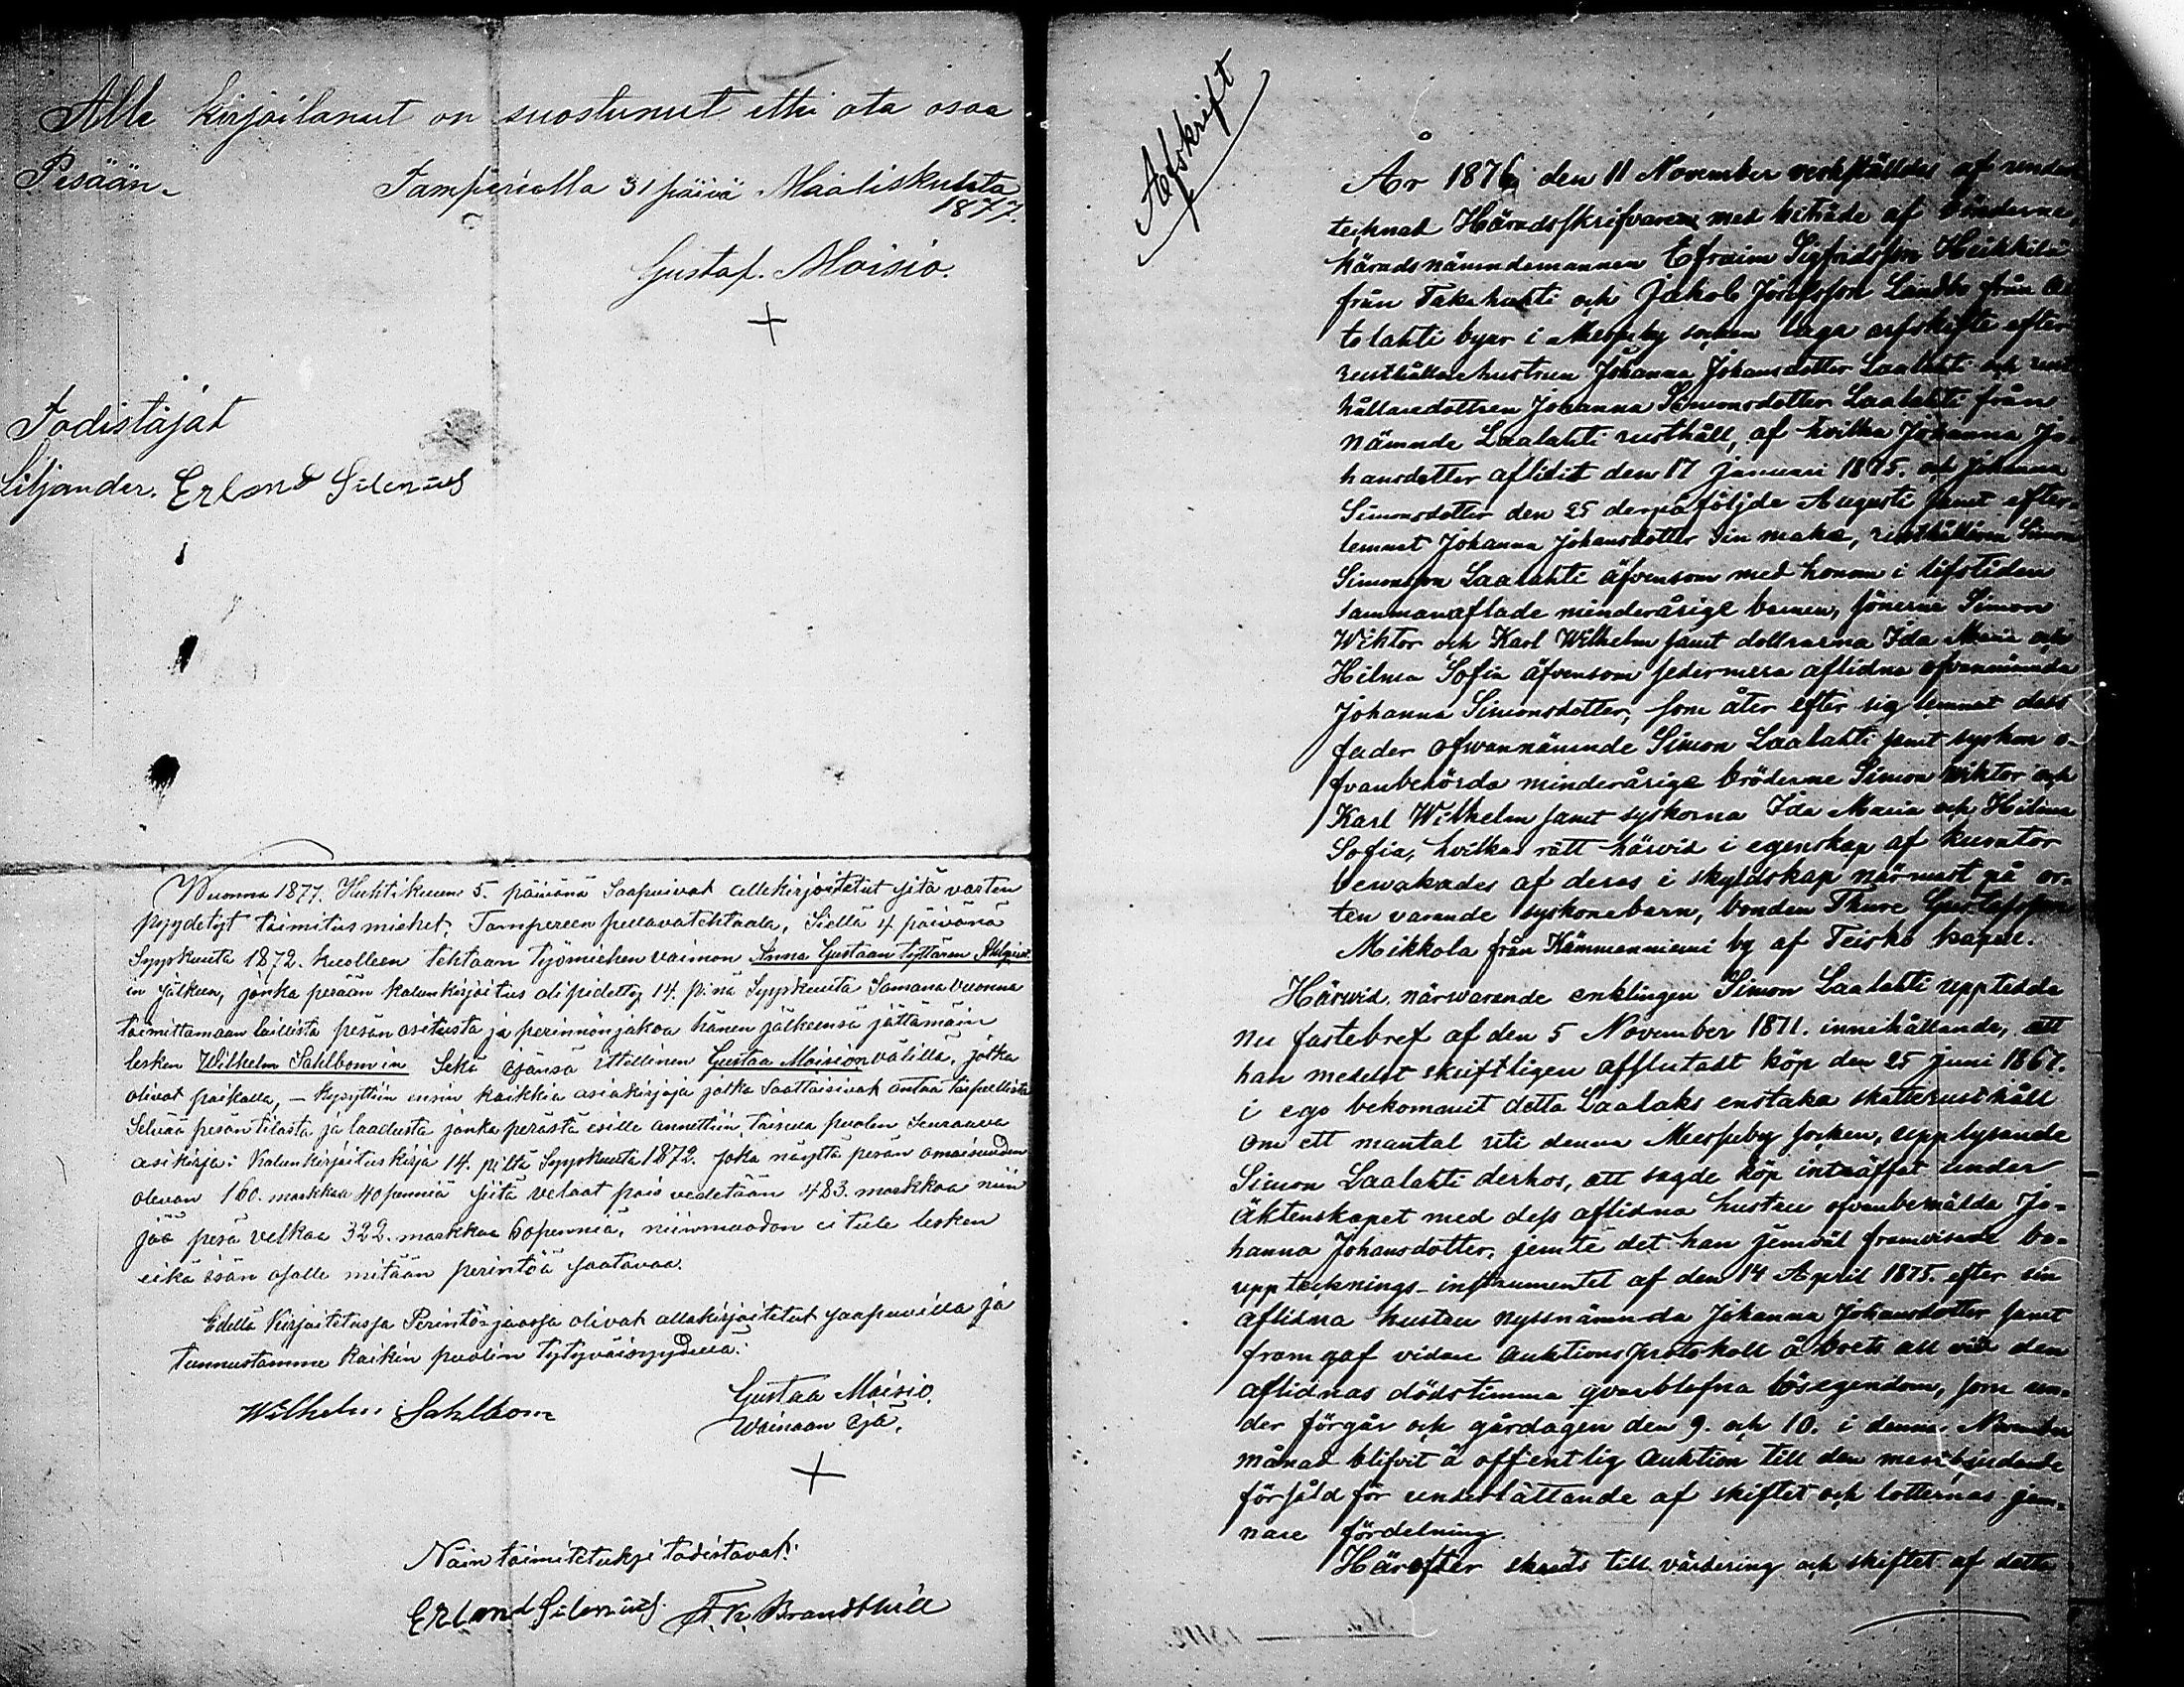 Alle kirjoilanut on suostunut ettei ota osaa
Pesään.
Tamperiella 31 päivä Maaliskuuta
1877.
Gustaf. Moisio.
+
Todistajat
Liljander. Erland Silenius
Wuonna 1877. Huhtikuun 5. päivänä Saapuivat allekirjoitetut sitä varten
pyydetyt toimitus miehet, Tampereen pellavatehtaala, Siellä 4 päivänä
Syyskuuta 1872. kuolleen tehtaan työmiehen vaimon Anna Gustaan tyttären
in jälkeen, jonka perään kalunkirjoitus oli pidetty 14. p:nä Syyskuuta Samana vuonna
toimittamaan laillista pesän ositusta ja perinnönjakoa hänen jälkeensä jättämäin
lesken Wilhelm Sahlbomin Sekä äjänsä ittellinen Gustaa Moision välillä, jotka
olivat paikalla, – kysyttiin ensin kaikkia asiakirjoja jotka Saattaisivat antaa täyvellistä
Selvää pesän tilasta ja laadusta jonka perästä esille annettiin, toiselta puolen Seuraava
asikirja: Kalunkirjoituskirja 14. p:ltä Syyskuuta 1872. Joka näyttä pesän omaisuuden
olevan 160. markkaa 40 penniä siitä velaat pois vedetään 483. markkaa niin
jää pesä velkaa 322. markkaa 60 penniä, niinmuodon ei tule lesken
eikä isän osalle mitään perintöä saatavaa.
Edellä Kirjoitetussa Perintö-jaossa olivat allakirjoitetut saapuvilla ja
tunnustamme kaikin puolin tytyväisyydellä.
Wilhelm Sahlbom
Gustaa Moisio.
Wainaan äjä.
+
Näin toimitetuksi todistavat:
Erland Silenius. F. K. Brandthill
Afskrift
År 1876 den 11 November verkställdes af under-
tecknad Häradsskrifvaren med biträde af bönderna,
häradsnämndemannen Efraim Sigfridsson Heikkilä
från Takahuhti och Jakob Josefsson Lundbo från Ai-
tolahti byar i Messuby socken laga arfskifte efter
rusthållarehustrun Johanna Johansdotter Laalahti och rust-
hållaredottren Johanna Simonsdotter Laalahti från
nämnde Laalahti rusthåll, af hvilka Johanna Jo-
hansdotter aflidit den 17 Januari 1875. och Johanna
Simonsdotter den 25 derpåföljde Augusti samt efter-
lemnat Johanna Johansdotter sin maka, rusthållaren Simon
Simonsson Laalahti äfvensom med honom i lifstiden
sammanaflade minderårige barnen, sönerne Simon
Wiktor och Karl Wilhelm samt döttrarna Ida Maria och
Hilma Sofia äfvensom sedermera aflidna ofvannämnda
Johanna Simonsdotter, som åter efter sig lemnat dess
fader ofwannämnde Simon Laalahti samt syskon o-
fvanberörda minderåriga bröderne Simon Wiktor och
Karl Wilhelm samt syskorna Ida Maria och Hilma
Sofia, hvilkas rätt härvid i egenskap af kurator
bewakades af deras i skyldskap närmast på or-
ten varande syskonebarn, bonden Thure Gustafsson
Mikkola från Kämmenniemi by af Teisko kapell.
Härvid närwarande enklingen Simon Laalahti upptedde
nu fastebref af den 5 November 1871. innehållande, att
han medelst skriftligen afslutadt köp den 25 Juni 1867.
i ego bekommit detta Laalaks enstaka skatterusthåll
om ett mantal uti denna Messuby socken, upplysande
Simon Laalahti derhos, att sagde köp inträffat under
äktenskapet med dess aflidna hustru ofvanbemälda Jo-
hanna Johansdotter, jemte det han jemväl framvisade bo-
upptecknings-instrumentet af den 14 April 1875. efter sin
aflidna hustru nyssnämnda Johanna Johansdotter samt
framgaf vidare Auktions protokoll å boets all vid den
aflidnas dödstimma qvarblefna lösegendom, som un-
der förgår och gårdagen den 9. och 10. i denna November
månad blifvit å offentlig Auktion till den mestbjudande
försåld för underlättande af skiftet och lotternas jem-
nare fördelning.
Härefter skreds till värdering och skiftet af detta